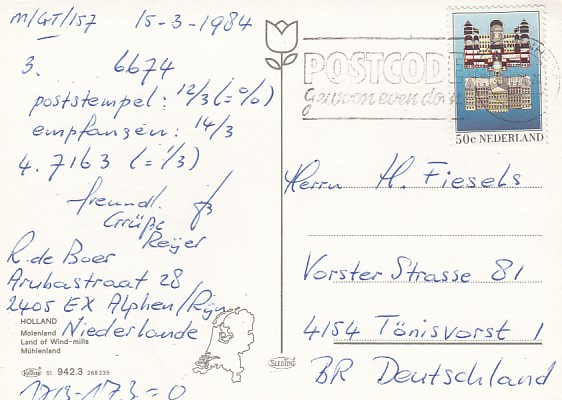 M/GT/157 15-3-1984
3. 6674
poststempel: 12/3 (=0%)
empfangen: 14/3
4. 7163 (=1/3)
freundl.
Grüße
Reijer
R. de Boer
Arubastraat 28
2405 EX Alphen/Rijn
Niederlande
HOLLAND
Molenland
Land of Wind-mills
Mühlenland
51. 942.3 268235
SLEDING
POSTCODE
gewoon even doen
50c NEDERLAND
Herrn H. Fiesels
Vorster Strasse 81
4154 Tönisvorst 1
BR Deutschland